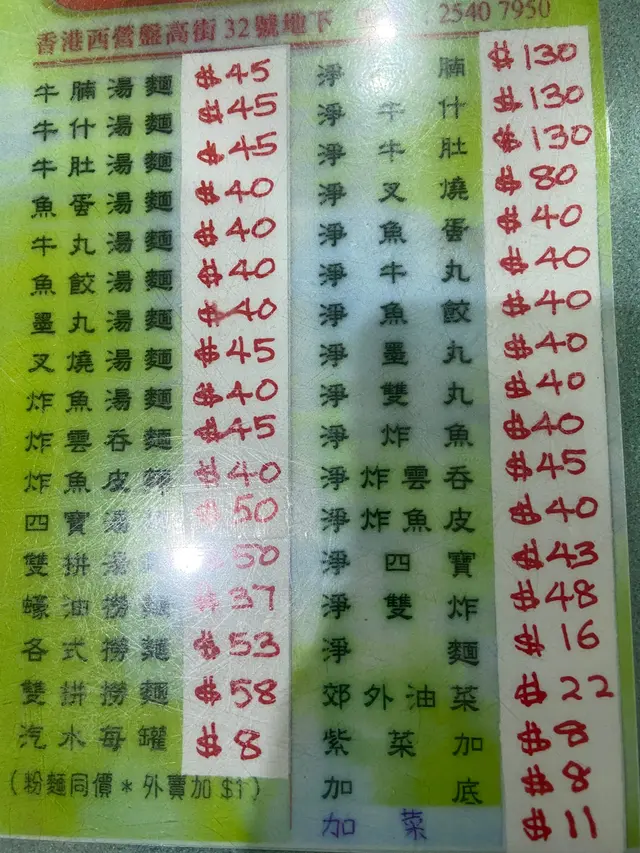 香港西營盤高街32號地下 2540 7950
牛腩湯麵 $45
牛什湯麵 $45
牛肚湯麵 $45
魚蛋湯麵 $40
牛丸湯麵 $40
魚餃湯麵 $40
墨丸湯麵 $40
叉燒湯麵 $45
炸魚湯麵 $40
炸雲吞麵 $45
炸魚皮麵 $40
四寶湯 $50
雙拼湯 $50
蠔油撈麵 $37
各式撈麵 $53
雙拼撈麵 $58
汽水每罐 $8
(粉麵同價*外賣加$1)
淨 腩 $130
淨牛什 $130
淨牛肚 $130
淨叉燒 $80
淨魚蛋 $40
淨牛丸 $40
淨魚餃 $40
淨墨丸 $40
淨雙丸 $40
淨炸魚 $40
淨炸雲吞 $45
淨炸魚皮 $40
淨四寶 $43
淨雙炸 $48
淨麵 $16
郊外油菜 $22
紫菜加 $8
加底 $8
加菜 $11